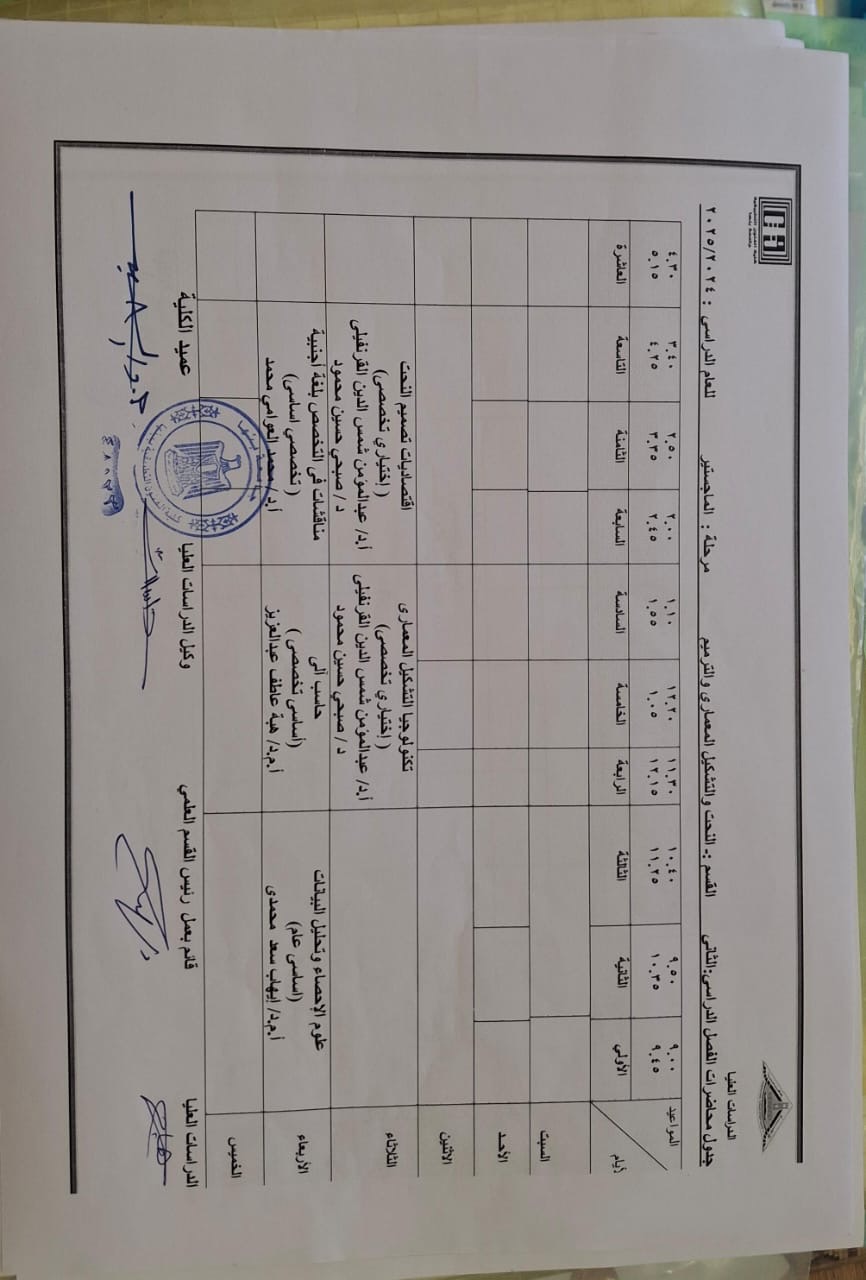 كلية الفنون التطبيقية
جامعة بنها
الدراسات العليا
جدول محاضرات الفصل الدراسي:الثاني القسم :- النحت والتشكيل المعمارى والترميم مرحلة : الماجستير للعام الدراسي : ٢٠٢٥/٢٠٢٤
المواعيد
أيام
٩.٠٠ ٩.٥٠ ١٠.٤٠ ١١.٣٠ ١٢.٢٠ ١.١٠ ٢.٠٠ ٢.٥٠ ٣.٤٠ ٤.٣٠
٩.٤٥ ١٠.٣٥ ١١.٢٥ ١٢.١٥ ١.٠٥ ١.٥٥ ٢.٤٥ ٣.٣٥ ٤.٢٥ ٥.١٥
الأولي الثانية الثالثة الرابعة الخامسة السادسة السابعة الثامنة التاسعة العاشرة
السبت
الأحد
الاثنين
الثلاثاء
تكنولوجيا التشكيل المعمارى
( إختياري تخصصى)
أ.د/ عبدالمؤمن شمس الدين القرنفيلى
د / صبحي حسين محمود
اقتصاديات تصميم النحت
( إختياري تخصصى)
أ.د/ عبدالمؤمن شمس الدين القرنفيلى
د / صبحي حسين محمود
الأربعاء
علوم الإحصاء وتحليل البيانات
(اساسى عام)
أ.م.د/ إيهاب سعد محمدى
حاسب ألى
(أساسى تخصصى )
أ.م.د/ هبة عاطف عبدالعزيز
مناقشات فى التخصص بلغة أجنبية
( تخصصي اساسى)
أ.د/ محمد العوامي محمد
الخميس
الدراسات العليا
قائم بعمل رئيس القسم العلمي
وكيل الدراسات العليا
عميد الكلية